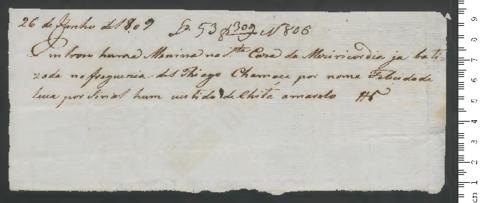 26 de Junho de 1809 Lº 53 f 309 N 806
Entrou huma Menina na Sta Caza da Mizericordia ja bati
zada na freguezia de S Thiago Chamace por nome Felicidade
leva por sinal hum vestido de Chita amarelo